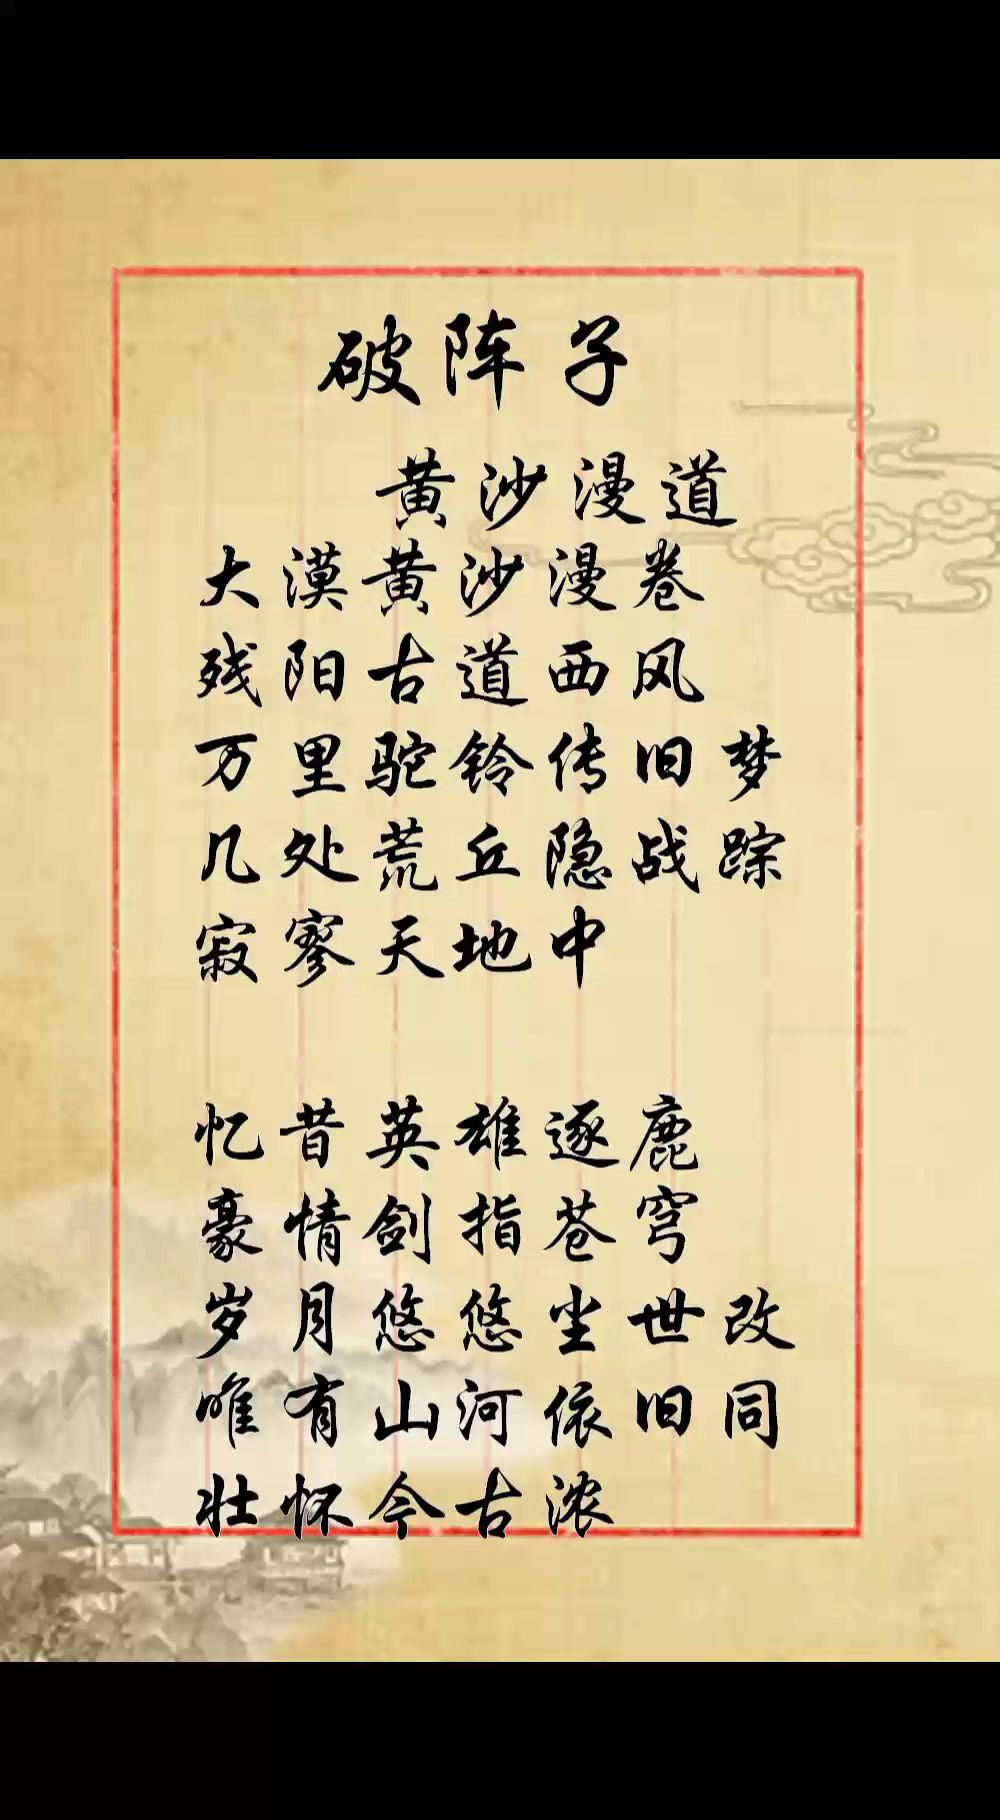 破阵子
黄沙漫道
大漠黄沙漫卷
残阳古道西风
万里驼铃传旧梦
几处荒丘隐战踪
寂寥天地中
忆昔英雄逐鹿
豪情剑指苍穹
岁月悠悠尘世改
唯有山河依旧同
壮怀今古浓